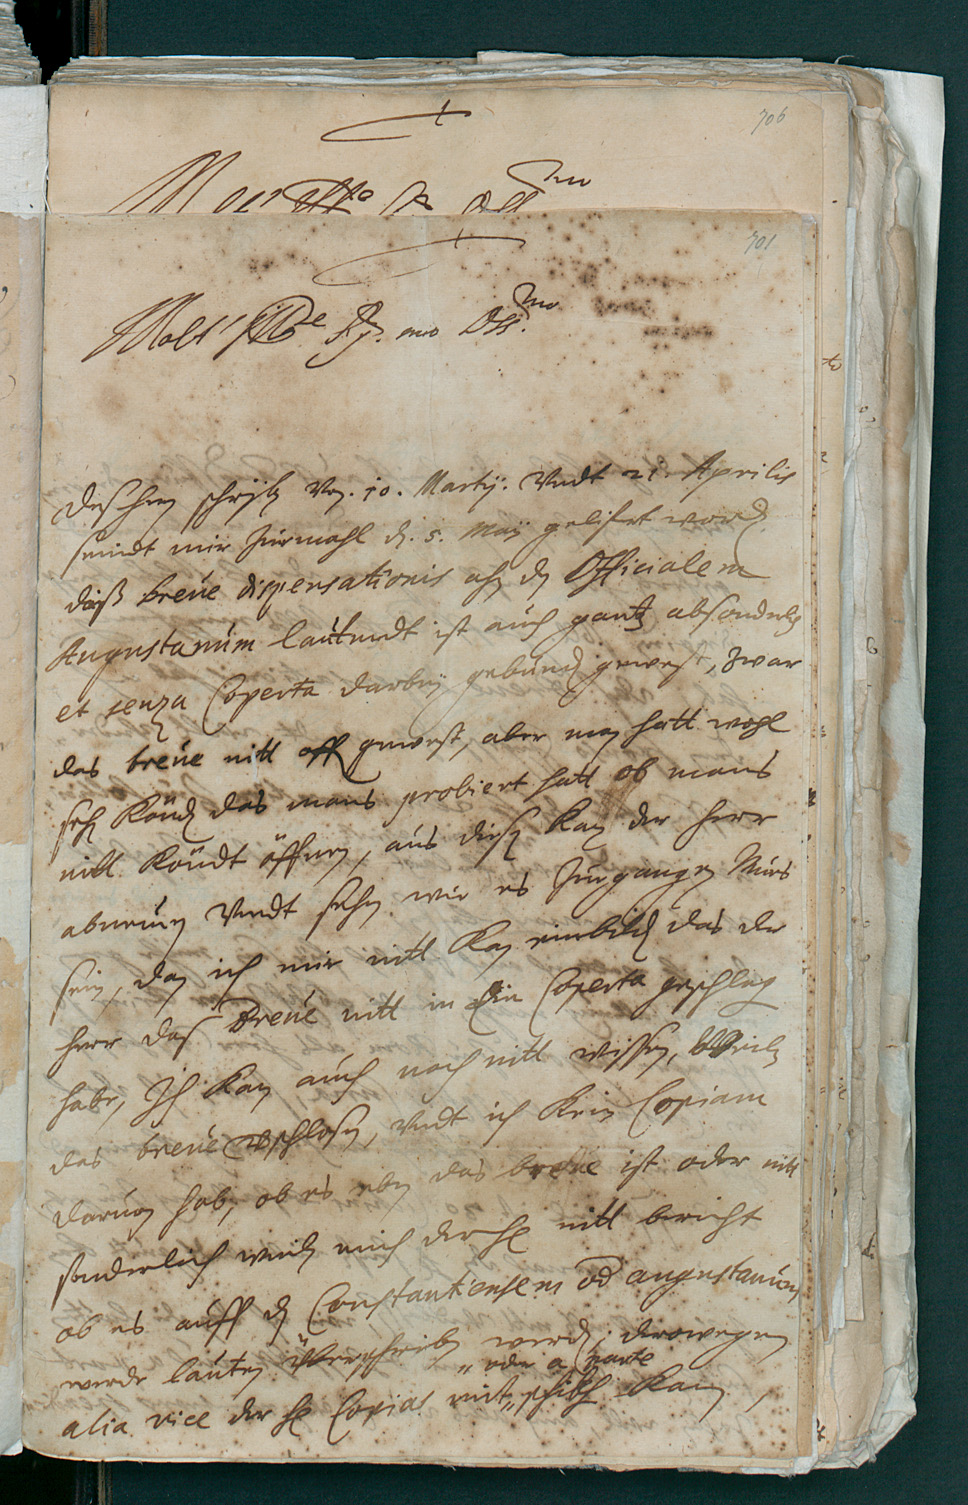 706
701
Molt' Ill.re Sig. mio Oss.mo
Deß hern schreib. Vo. 10. Martij. Vndt 21. Aprilis
seindt mir zuemahl d. 5. Maij gelifert word.
daß breue dispensationis ahn den Officialem
Augustanum lautendt ist auch gantz absonderlich
et senza Coperta darbey gebund. gewest, zwar
das breue nitt off. gewest, aber man hatt wohl
seh. könd. das mans probiert hatt ob mans
nitt köndt öffnen, aus disen kan der herr
abnemen vndt sehen wie es zuegangen mus
sein, dan ich mir nitt kan einbild. das der
herr das Breue nitt in ein Coperta geschlag.
habe, Ich kan auch noch nitt wissen, weilen
das breue verschlosen, vndt ich kein Copiam
daruon hab, ob es eben das breue ist oder nitt
sonderlich weilen mich der h. nitt bericht
ob es auff den Constantiensem od. augustanum
werde lauten überschriben werd. derowegen
" oder a parte
alia vice der h. Copias mit " schickh. kan,